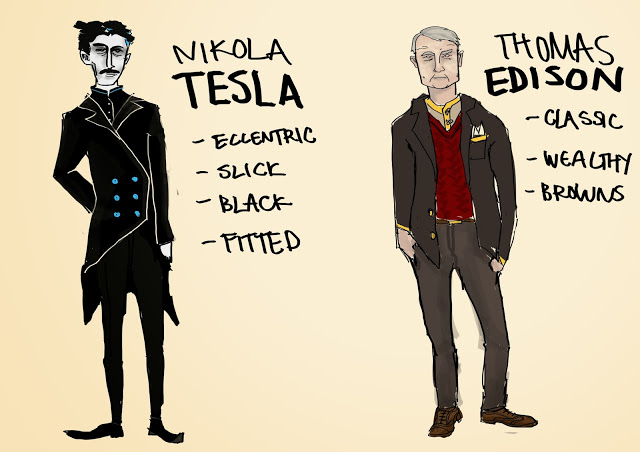 NIKOLA
TESLA
- ECCENTRIC
- SLICK
- BLACK
- FITTED
THOMAS
EDISON
- CLASSIC
- WEALTHY
- BROWNS